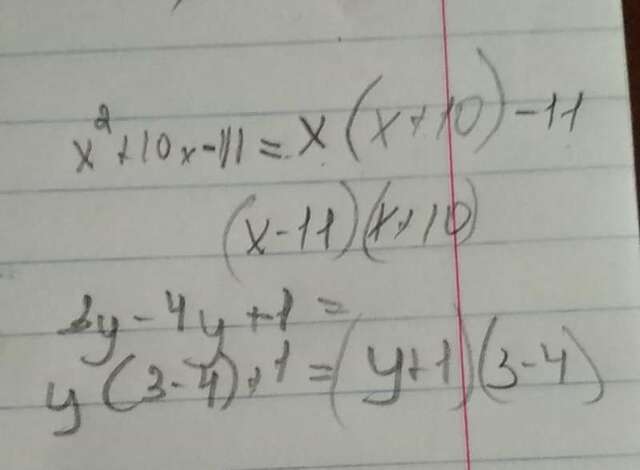 x²+10x-11=x(x+10)-11
(x-11)(x+10)
3y-4y+1=
y(3-4)+1=(y+1)(3-4)